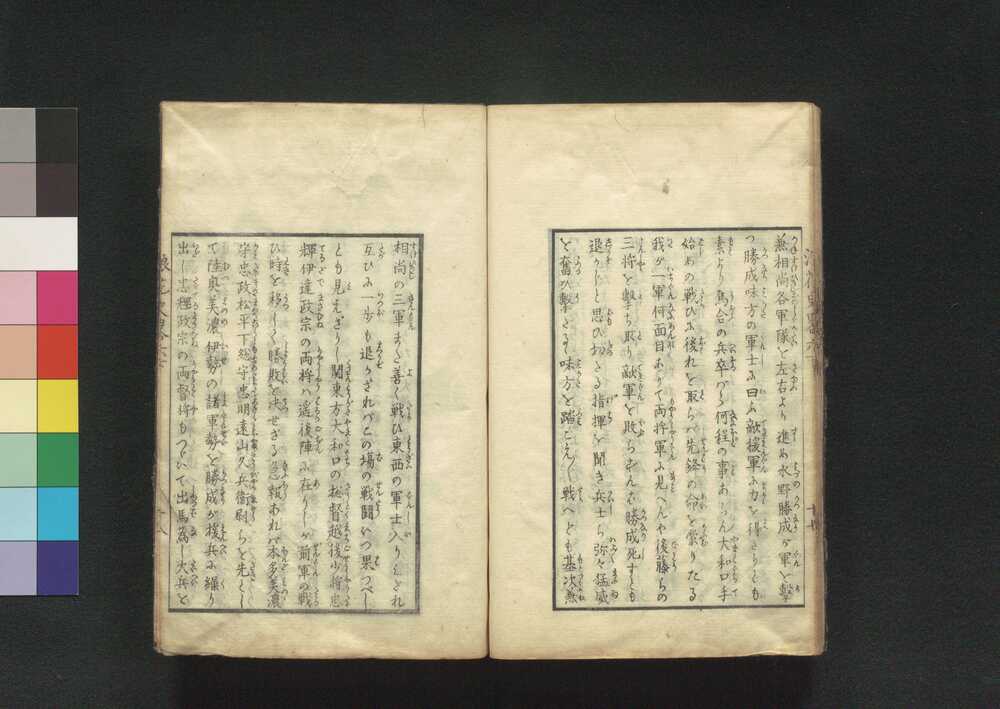 兼相尚各軍隊を左右より進め水野勝成が軍を撃
つ勝成味方の軍士に曰ふ敵援軍に力を得るとも
素より烏合の兵卒バら何程の事あらん大和口手
始めの戦ひに後れを取らバ先鋒の命を蒙りたる
我が一軍何面目ありて両将軍に見へんや後藤らの
三将を撃ち取り敵軍を敗らずんバ勝成死すとも
退かじと思ひ切たる指揮を聞き兵士ら弥々猛威
を奮ひ撃
味方を踏こえ〳〵戦へども基次兼
相尚の三軍また善く戦ひ東西の軍士入りみだれ
互ひに一歩も退かざれバこの場の戦闘いつ果つべし
とも見えざりし関東方大和口の総督越後少将忠
輝伊達政宗の両将ハ遥後陣に在りしが前軍の戦
ひ時を移しく勝敗を決せざる急報あれバ本多美濃
守忠政松平下総守忠明遠山久兵衛尉らを先とし
て陸奥美濃伊勢の諸軍勢を勝成が援兵に繰り
出し忠輝政宗の両督将もつゞいて出馬為し大兵を